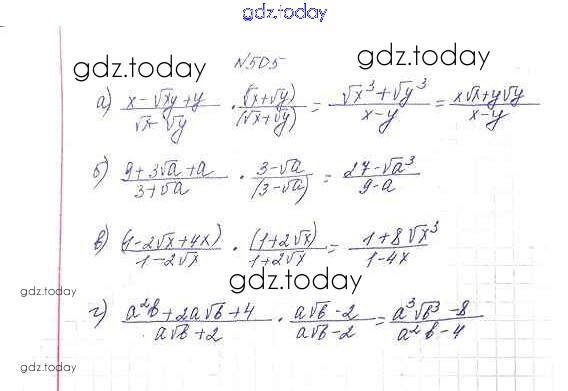 gdz.today
№505
gdz.today gdz.today
а) (x - √xy + y)/(√x - √y) · (√x + √y)/(√x + √y) = (√x³ + √y³)/(x - y) = (x√x + y√y)/(x - y)
б) (9 + 3√a + a)/(3 + √a) · (3 - √a)/(3 - √a) = (27 - √a³)/(9 - a)
в) (1 - 2√x + 4x)/(1 - 2√x) · (1 + 2√x)/(1 + 2√x) = (1 + 8√x³)/(1 - 4x)
gdz.today gdz.today
г) (a²b + 2a√b + 4)/(a√b + 2) · (a√b - 2)/(a√b - 2) = (a³√b³ - 8)/(a²b - 4)
gdz.today gdz.today